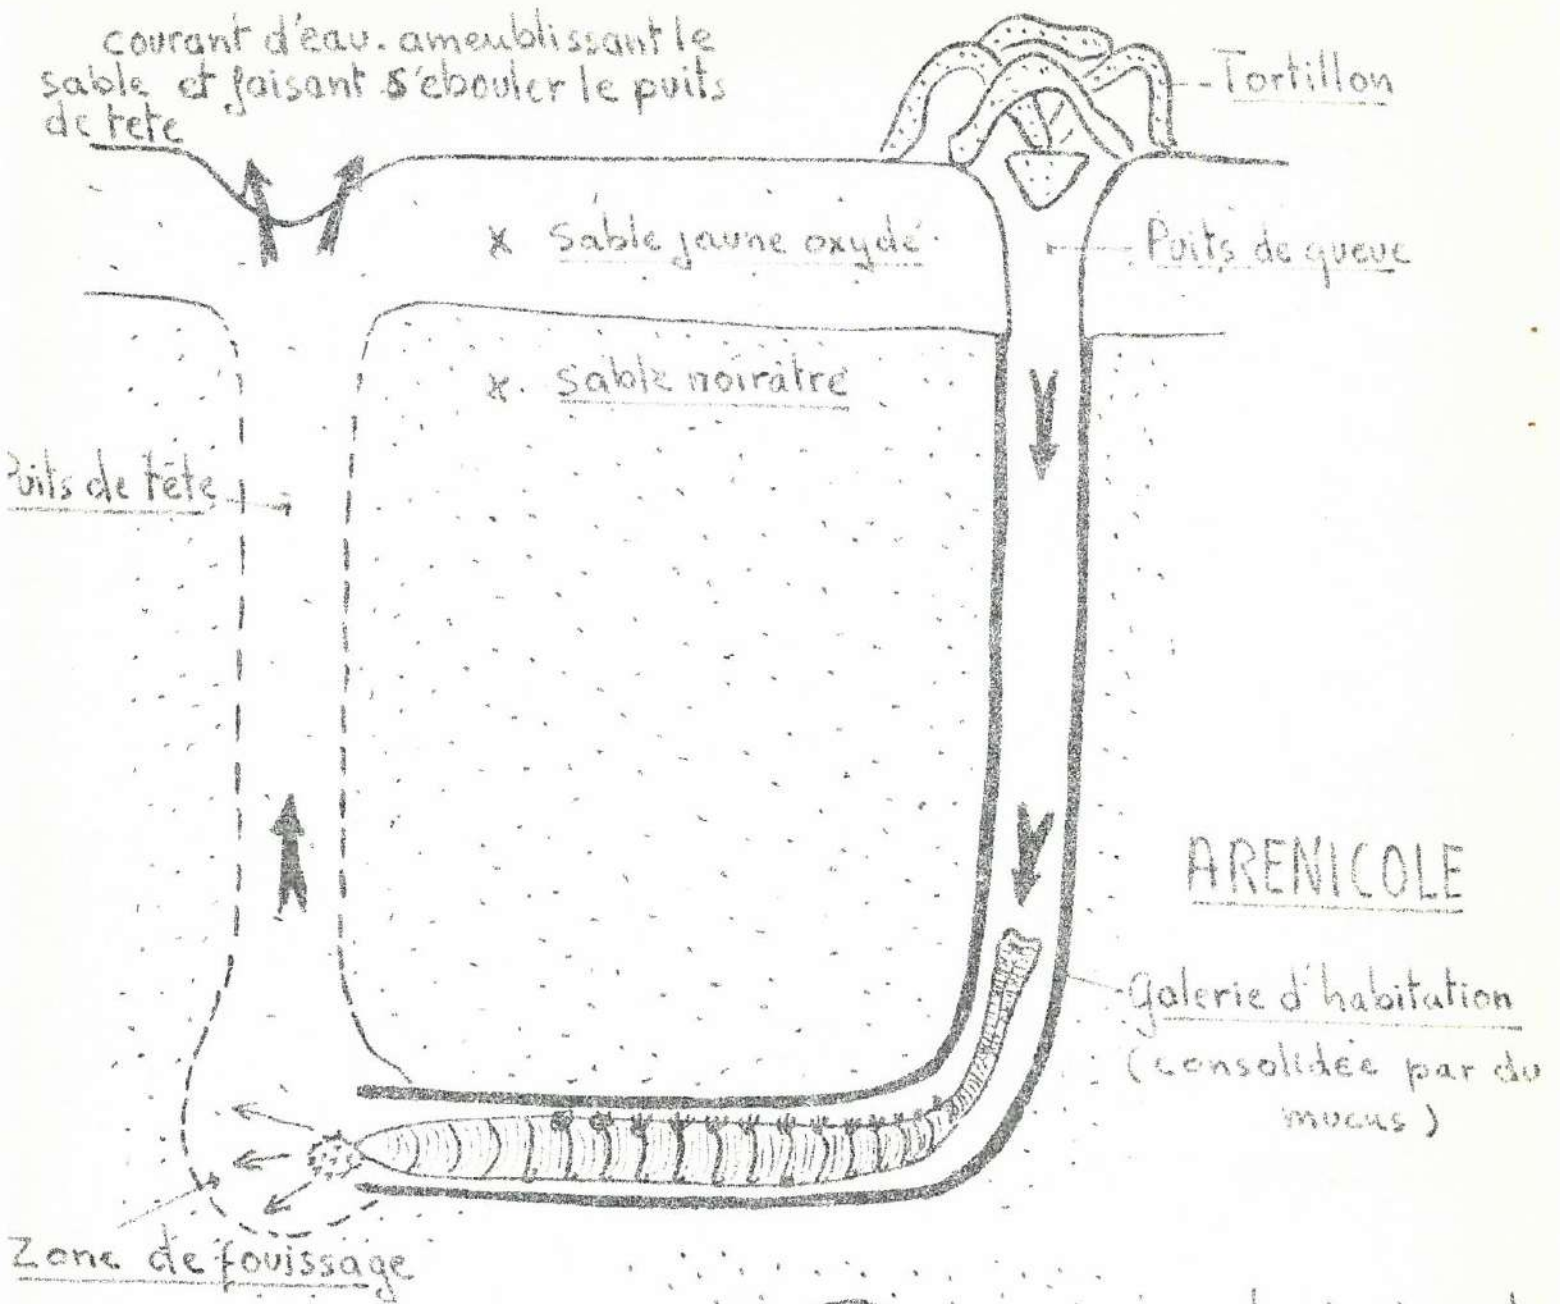 courant d'eau. ameublissant le
sable et faisant s'ebouler le puits
de tete
Tortillon
x Sable jaune oxydé.
Puits de queue
x. Sable noirâtre
Puits de tête
ARENICOLE
Galerie d'habitation
(consolidée par du
mucus)
Zone de fouissage